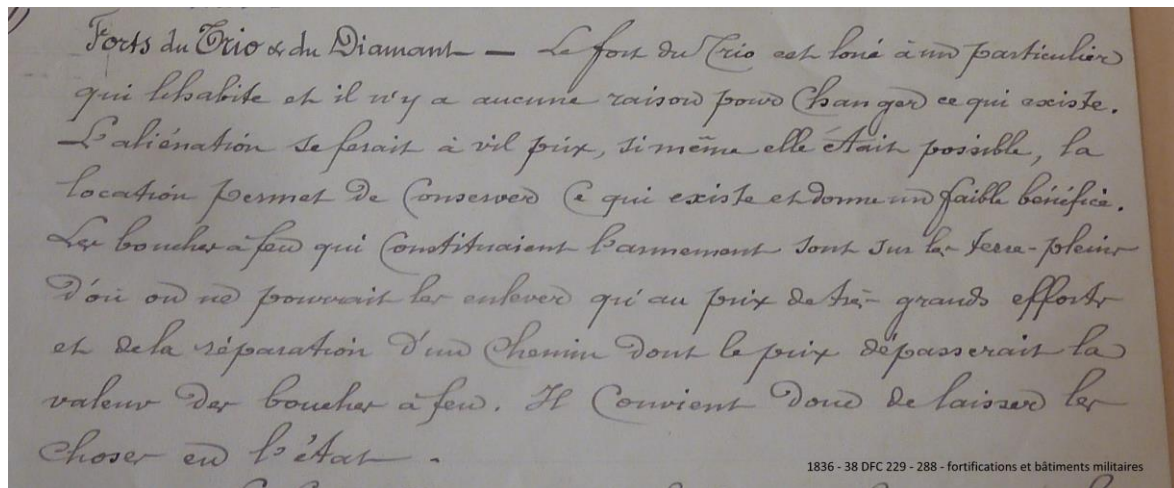 Forts du Trio & du Diamant — Le fort du Trio est loué à un particulier
qui l'habite et il n'y a aucune raison pour changer ce qui existe.
L'aliénation se ferait à vil prix, si même elle était possible, la
location permet de conserver ce qui existe et donne un faible bénéfice.
Les bouches à feu qui constituaient l'armement sont sur les terre-pleins
d'où on ne pourrait les enlever qu'au prix de très grands efforts
et de la réparation d'un chemin dont le prix dépasserait la
valeur des bouches à feu. Il convient donc de laisser les
choses en l'état.
1836 - 38 DFC 229 - 288 - fortifications et bâtiments militaires